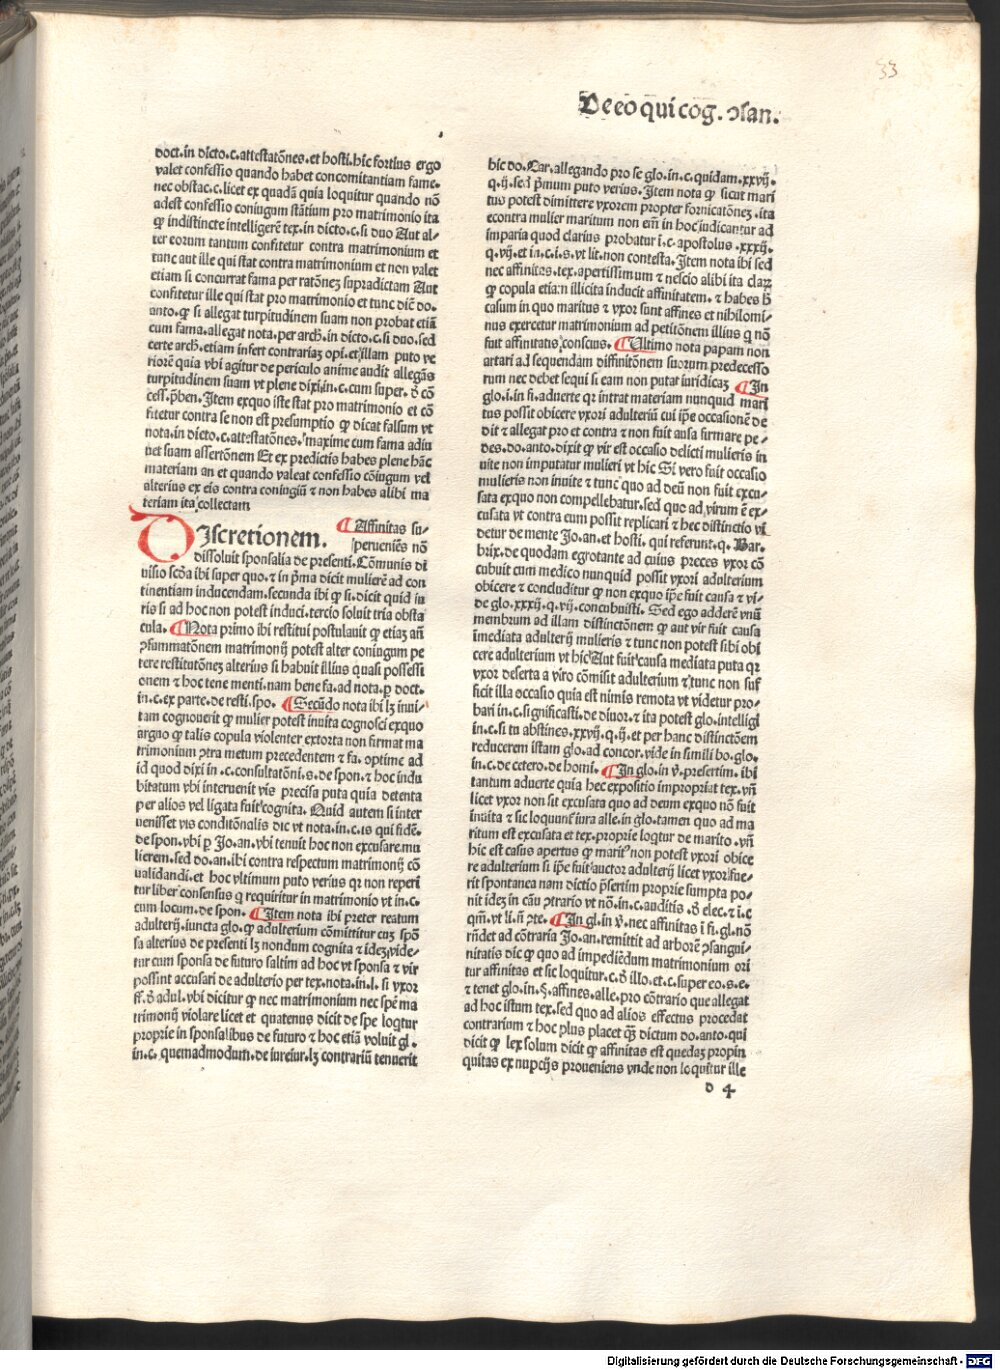 33
De eo qui cog. ↄsan.
doct. in dicto. c. attestatōnes. et hosti. hic fortius ergo
valet confessio quando habet concomitantiam fame.
nec obstac. c. licet ex quadā quia loquitur quando nō
adest confessio coniugum stātium pro matrimonio ita
ꝙ indistincte intelligerē tex. in dicto. c. si duo Aut al-
ter eorum tantum confitetur contra matrimonium et
tunc aut ille qui stat contra matrimonium et non valet
etiam si concurrat fama per ratōneʒ supradictam Aut
confitetur ille qui stat pro matrimonio et tunc diē do.
anto. ꝙ si allegat turpitudinem suam non probat etiā
cum fama. allegat nota. per arch. in dicto. c. si duo. sed
certe arch. etiam infert contrariaʒ opi. et illam puto ve
riorē quia vbi agitur de periculo anime audit allegās
turpitudinem suam vt plene dixi in. c. cum super. d̄ cō
cess. p̄ben. Item exquo iste stat pro matrimonio et cō
fitetur contra se non est presumptio ꝙ dicat falsum vt
nota. in dicto. c. attestatōnes. maxime cum fama adiu
uet suam assertōnem Et ex predictis habes plene hāc
materiam an et quando valeat confessio cōiugum vel
alterius ex eis contra coniugiū ⁊ non habes alibi ma
teriam ita collectam
DIscretionem. ¶ Affinitas su-
perueniēs nō
dissoluit sponsalia de presenti. Cōmunis di
uisio scd̄a ibi super quo. ⁊ in p̄ma dicit mulierē ad con
tinentiam inducendam. secunda ibi ꝙ si. dicit quid iu
ris si ad hoc non potest induci. tercio soluit tria obsta
cula. ¶ Nota primo ibi restitui postulauit ꝙ etiaʒ an̄
ↄsummatōnem matrimonij potest alter coniugum pe
tere restitutōneʒ alterius si habuit illius quasi possessi
onem ⁊ hoc tene menti. nam bene fa. ad nota. ꝑ doct.
in. c. ex parte. de resti. spo. ¶ Secūdo nota ibi lʒ inui-
tam cognouerit ꝙ mulier potest inuita cognosci exquo
arguo ꝙ talis copula violenter extorta non firmat ma
trimonium ↄtra metum precedentem ⁊ fa. optime ad
id quod dixi in .c. consultatōni. s. de spon. ⁊ hoc indu
bitatum vbi interuenit vis precisa puta quia detenta
per alios vel ligata fuit cognita. Quid autem si inter
uenisset vis conditōnalis dic vt nota. in. c. is qui fidē.
de spon. vbi ꝑ Jo. an. vbi tenuit hoc non excusare mu
lierem. sed do. an. ibi contra respectum matrimonij cō
ualidandi. et hoc vltimum puto verius qr non reperi
tur liber consensus q requiritur in matrimonio vt in. c.
cum locum. de spon. ¶ Item nota ibi preter reatum
adulterij. iuncta glo. ꝙ adulterium cōmittitur cuʒ spō
sa alterius de presenti lʒ nondum cognita ⁊ ideʒ vide-
tur cum sponsa de futuro saltim ad hoc vt sponsa ⁊ vir
possint accusari de adulterio per tex. nota. in. l. si vxor
ff. d̄ adul. vbi dicitur ꝙ nec matrimonium nec spē ma
trimonij violare licet et quatenus dicit de spe loqtur
proprie in sponsalibus de futuro ⁊ hoc etiā voluit gl.
in. c. quemadmodum. de iureiur. lʒ contrariū tenuerit
hic do. Car. allegando pro se glo. in. c. quidam. xxvij.
q. ij. sed p̄mum puto verius. Item nota ꝙ sicut mari
tus potest dimittere vxorem propter fornicatōneʒ. ita
econtra mulier maritum non em̄ in hoc iudicantur ad
imparia quod clarius probatur ī. c. apostolus .xxxij.
q. vij. et in. c. i. s. vt lit. non contesta. Item nota ibi sed
nec affinitas. tex. apertissimum ⁊ nescio alibi ita claꝝ
ꝙ copula etiam illicita inducit affinitatem. ⁊ habes h̄
casum in quo maritus ⁊ vxor sunt affines et nihilomi-
nus exercetur matrimonium ad petitōnem illius q nō
fuit affinitatis conscius. ¶ Ultimo nota papam non
artari ad sequendam diffinitōnem suorum predecesso
rum nec debet sequi si eam non putat iuridicaʒ ¶ In
glo. i. in fi. aduerte qr intrat materiam nunquid mari
tus possit obicere vxori adulteriū cui ip̄e occasionē de
dit ⁊ allegat pro et contra ⁊ non fuit ausa firmare pe-
des. do. anto. dixit ꝙ vir est occasio delicti mulieris in
uite non imputatur mulieri vt hic Si vero fuit occasio
mulieris non inuite ⁊ tunc quo ad deū non fuit excu-
sata exquo non compellebatur. sed quo ad virum ē ex-
cusata vt contra cum possit replicari ⁊ hec distinctio vi
detur de mente Jo. an. et hosti. qui referunt. q. Bar.
brix. de quodam egrotante ad cuius preces vxor cō
cubuit cum medico nunquid possit vxori adulterium
obicere ⁊ concluditur ꝙ non exquo ip̄e fuit causa ⁊ vi-
de glo. xxxij. q. vij. concubuisti. Sed ego adderē vnū
membrum ad illam distinctōnem ꝙ aut vir fuit causa
īmediata adulterij mulieris ⁊ tunc non potest sibi obi
cere adulterium vt hic Aut fuit causa mediata puta qr
vxor deserta a viro cōmisit adulterium ⁊ tunc non suf
ficit illa occasio quia est nimis remota vt videtur pro-
bari in. c. significasti. de diuor. ⁊ ita potest glo. intelligi
in. c. si tu abstines. xxvij. q. ij. et per hanc distinctōem
reducerem istam glo. ad concor. vide in simili bo. glo.
in. c. de cetero. de homi. ¶ In glo. in v̄. presertim. ibi
tantum aduerte quia hec expositio impropriat tex. vn̄
licet vxor non sit excusata quo ad deum exquo nō fuit
inuita ⁊ sic loquunt̄ iura alle. in glo. tamen quo ad ma
ritum est excusata et tex. proprie loqtur de marito. vn̄
hic est casus apertus ꝙ marit9 non potest vxori obice
re adulterium si ip̄e fuit auctor adulterij licet vxor fue-
rit spontanea nam dictio p̄sertim proprie sumpta po-
nit ideʒ in cāu ↄtrario vt nō. in. c. auditis. d̄ elec. ⁊ ī. c
qm̄. vt li. n̄ ↄte. ¶ In gl. in v̄. nec affinitas ī fi. gl. nō
rn̄det ad cōtraria Jo. an. remittit ad arborē ↄsangui-
nitatis dic ꝙ quo ad impediēdum matrimonium ori
tur affinitas et sic loquitur. c. d̄ illo. et. c. super eo. s. e.
⁊ tenet glo. in. §. affines. alle. pro cōtrario que allegat
ad hoc istum tex. sed quo ad alios effectus procedat
contrarium ⁊ hoc plus placet qʒ dictum do. anto. qui
dicit ꝙ lex solum dicit ꝙ affinitas est quedaʒ propin
quitas ex nupcijs proueniens vnde non loquitur ille
d 4
Digitalisierung gefördert durch die Deutsche Forschungsgemeinschaft - DFG